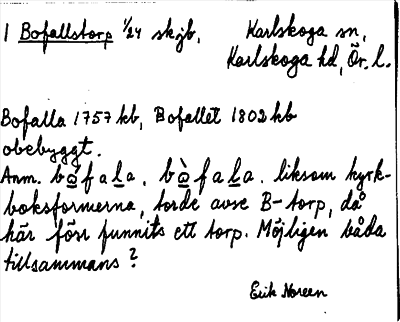 1 Bofallstorp 1/24 skjb, Karlskoga sn,
Karlskoga hd, Ör. l.
Bofalla 1757 kb, Bofallet 1802 kb
obebyggt.
Anm. bo̊fala, bòfala. liksom kyrk-
boksformerna, torde avse B-torp, då
här förr funnits ett torp. Möjligen båda
tillsammans?
Erik Noreen